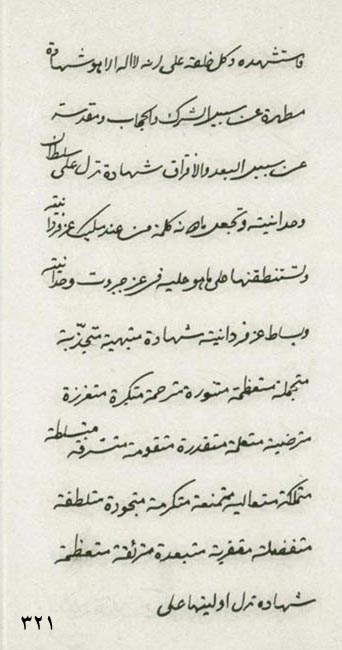 فاستشهده وكل خلقه على انه لا اله الا هو شهادة
مطهرة عن سبيل الشرك والحجاب ومقدسة
عن سبيل البعد والافتراق شهادة تدل على سلطان
وحدانيته وتجعل كلمة من عند عز فردانيته
ولتستنطقنها على ما هو عليه في عز جبروت وحدانيته
وبساط عز فردانيته شهادة متبهية متجذبة
متجملة متعظمة متنورة مترحمة متكبرة متعززة
مترضية متعلمة متقدرة متقومة متشرفة متسلطة
متملكة متعالية ممتنعة متكرمة متجودة متلطفة
متفضلة متبعدة متعظمة
شهادة تدل اوليتها على
۳۲۱